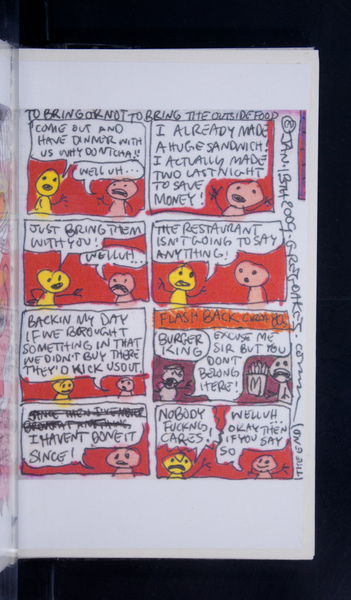 TO BRING OR NOT TO BRING THE OUTSIDE FOOD
COME OUT AND
HAVE DINNER WITH
US WHY DONTCHA!!
WELL UH...
I ALREADY MADE
A HUGE SANDWICH!
I ACTUALLY MADE
TWO LAST NIGHT
TO SAVE
MONEY!
JUST BRING THEM
WITH YOU!
WELL UH...
THE RESTAURANT
ISN'T GOING TO SAY
ANYTHING!
BACK IN MY DAY
IF WE BROUGHT
SOMETHING IN THAT
WE DIDN'T BUY THERE
THEY'D KICK US OUT!
FLASH BACK
BURGER
KING
EXCUSE ME
SIR BUT YOU
DON'T
BELONG
HERE!
M
SINCE THEN I'VE NEVER
BROUGHT ANYTHING
I HAVENT DONE IT
SINCE!
NOBODY
FUCKNG,
CARES!
WELL UH
OKAY THEN
IF YOU SAY
SO
© JAN. 18TH 2009. GREGOAKES.COM
THE END